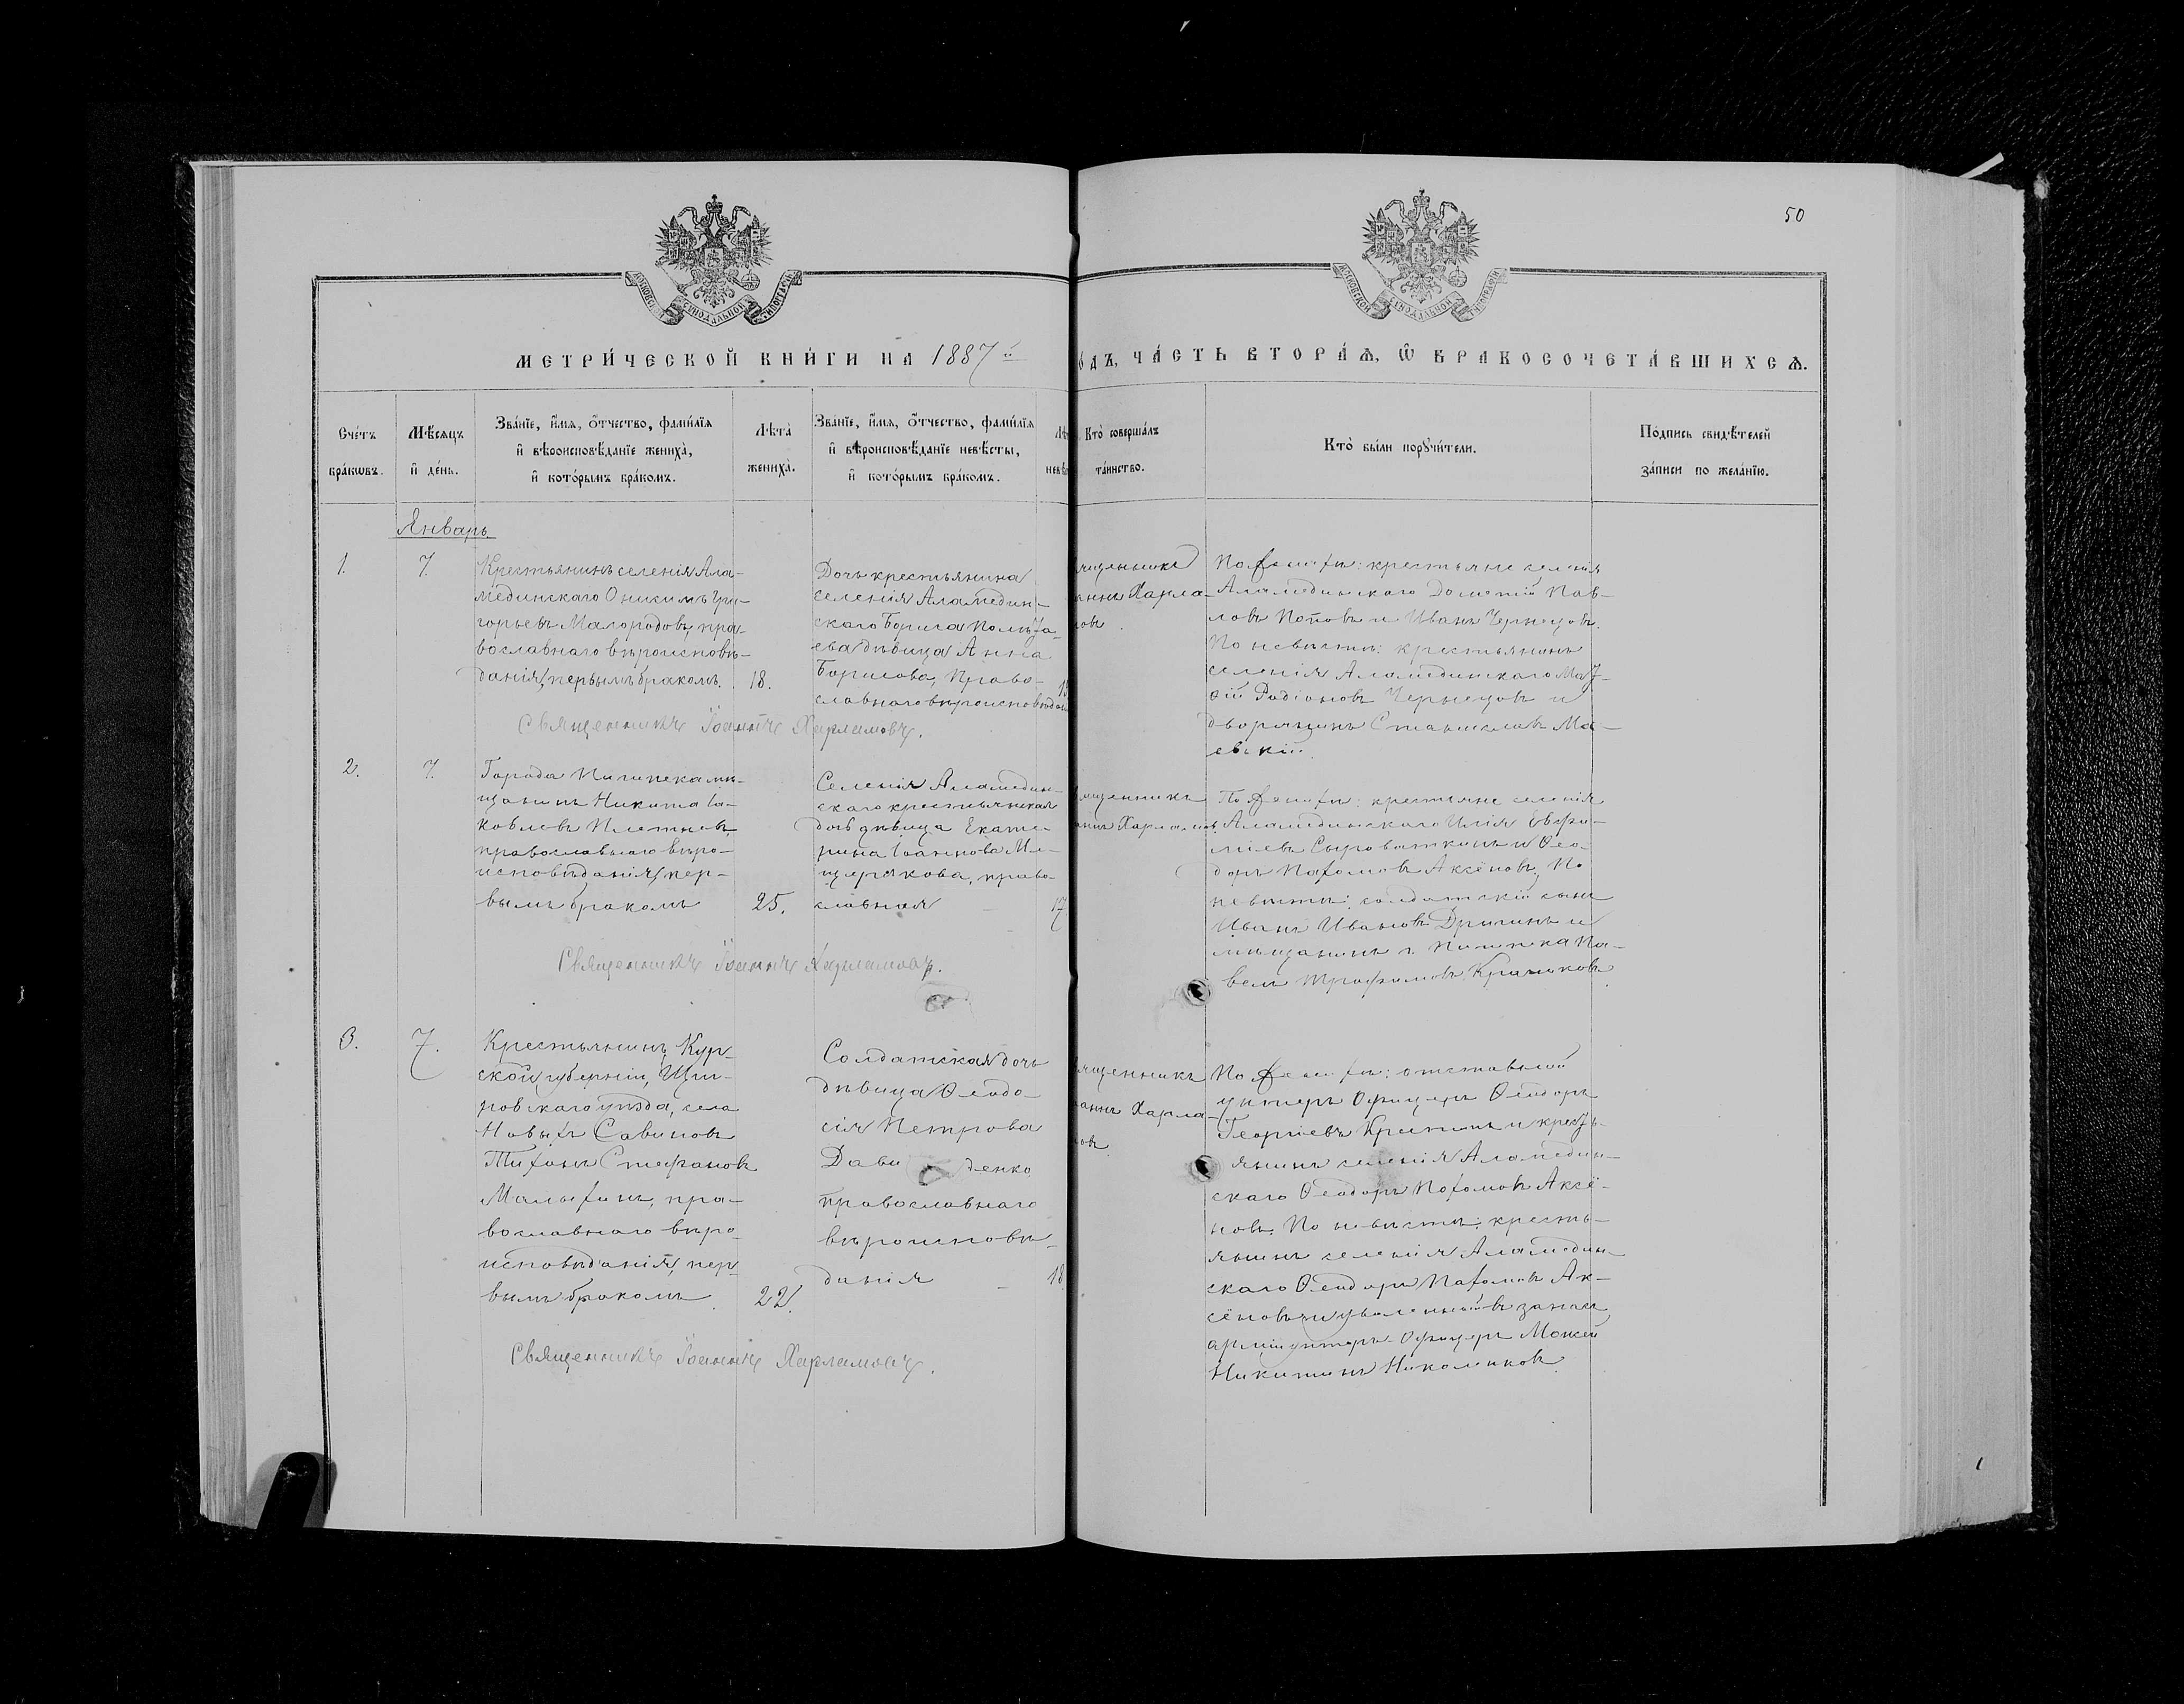 50
МОСКОВСКОЙ СѴНОДАЛЬНОЙ ТИПОГРАФІИ
МОСКОВСКОЙ СѴНОДАЛЬНОЙ ТИПОГРАФІИ
МЕТРИ́ЧЕСКОЙ КНИ́ГИ НА 1887 й
о́дъ, ЧА́СТЬ ВТОРА́Ѧ, Ѿ БРАКОСОЧЕТА́ВШИХСѦ.
Сче́тъ бра́кѡвъ.
Мѣ́сѧцъ и҆ де́нь.
Зва́нїе, и҆́мѧ, о҆́тчество, фами́лїѧ
и҆ вѣроисповѣ́данїе жениха̀,
и҆ кото́рымъ бра́комъ.
Лѣта̀ жениха̀.
Зва́нїе, и҆́мѧ, о҆́тчество, фами́лїѧ
и҆ вѣроисповѣ́данїе невѣ́сты,
и҆ кото́рымъ бра́комъ.
Лѣ
невѣ
Кто̀ соверша́лъ
та́инство.
Кто̀ бы́ли порꙋчи́тели.
По́дпись свидѣ́телей
за́писи по жела́нїю.
Январь
1.
7.
Крестьянинъ селенія Ала-
мединскаго Онисимъ Гри-
горьевъ Малородовъ, пра-
вославнаго вѣроисповѣ-
данія, первымъ бракомъ.
18.
Дочь крестьянина
селенія Аламедин-
скаго Бориса
дѣвица Анна
Борисова, право-
славнаго вѣроисповѣдан
щенникъ
аннъ Харла-
овъ.
По женихѣ: крестьяне селенія
Аламединскаго Дометій Пав-
ловъ Поповъ и Иванъ Чернецовъ.
По невѣстѣ: крестьянинъ
селенія Аламединскаго
Радіоновъ Чернецовъ и
дворянинъ Станиславъ Ма-
евскій.
Священникъ Іоаннъ Харламовъ.
2.
7.
Города Пишпека мѣ-
щанинъ Никита Іа-
ковлевъ Плетневъ,
православнаго вѣро-
исповѣданія, пер-
вымъ бракомъ
25.
Селенія Аламедин-
скаго крестьянская
дочь дѣвица Екате-
рина Іоаннова Ме-
щерякова, право-
славная
17.
щенникъ
аннъ Харламовъ
По женихѣ: крестьяне селенія
Аламединскаго Илія Евфи-
міевъ Сыроваткинъ и Ѳео-
доръ Пахомовъ Аксёновъ. По
невѣстѣ: солдатскій сынъ
Иванъ Ивановъ и
мѣщанинъ г. Пишпека Па-
велъ Трофимовъ
Священникъ Іоаннъ Харламовъ.
3.
7.
Крестьянинъ Кур-
ской губерніи, Щиг-
ровскаго уѣзда, села
Новыхъ Савиновъ
Тихонъ Стефановъ
Малыхинъ, пра-
вославнаго вѣро-
исповѣданія, пер-
вымъ бракомъ
22.
Солдатская дочь
дѣвица Ѳеодо-
сія Петрова
Дави денко
православнаго
вѣроисповѣ-
данія
18
щенникъ
аннъ Харла-
овъ
По женихѣ: отставной
унтеръ офицеръ Ѳеодоръ
Георгіевъ и кресть-
янинъ селенія Аламедин-
скаго Ѳеодоръ Пахомовъ Аксё-
новъ. По невѣстѣ: кресть-
янинъ селенія Аламедин-
скаго Ѳеодоръ Пахомовъ Ак-
сёновъ и уволенный въ запасъ
арміи унтеръ-офицеръ Моисей
Никитинъ Николенковъ.
Священникъ Іоаннъ Харламовъ.